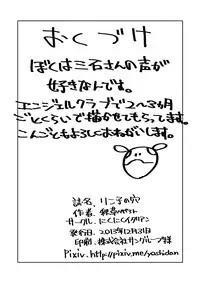 おくづけ
ぼとは三石さんの声が
好きなんです。
エンジェルクラブで2〜3ヵ月
ごとくらいで描かせてもらってます。
こんごともよろしくおねがいします。
誌名、リンチの穴
作者、
サークル、にくにくイタリアン
発行日、2013年12月31日
印刷、株式会社サングループ様
Pixiv、http://pixiv.me/yoshidan